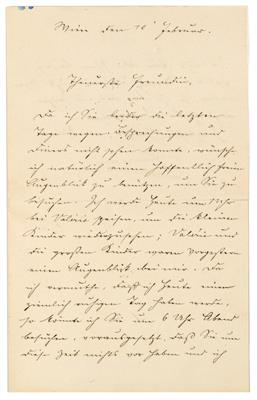 Wien den 10 Februar.
Theuerste Freundin,
Da ich Sie leider die letzten
Tage wegen Besprechungen und
Diners nicht sehen konnte, wünsche
ich natürlich einen hoffentlich freien
Augenblick zu benützen, um Sie zu
besuchen. Ich werde heute um Uhr
bei Valérie speisen, um die kleinen
Kinder wiederzusehen; Valérie und
die großen Kinder waren vorgestern
einen Augenblick bei mir. Da
ich vermuthe, daß ich heute einen
ziemlich ruhigen Tag haben werde,
so könnte ich Sie um 6 Uhr Abend
besuchen, vorausgesetzt, daß Sie um
diese Zeit nichts vor haben und ich